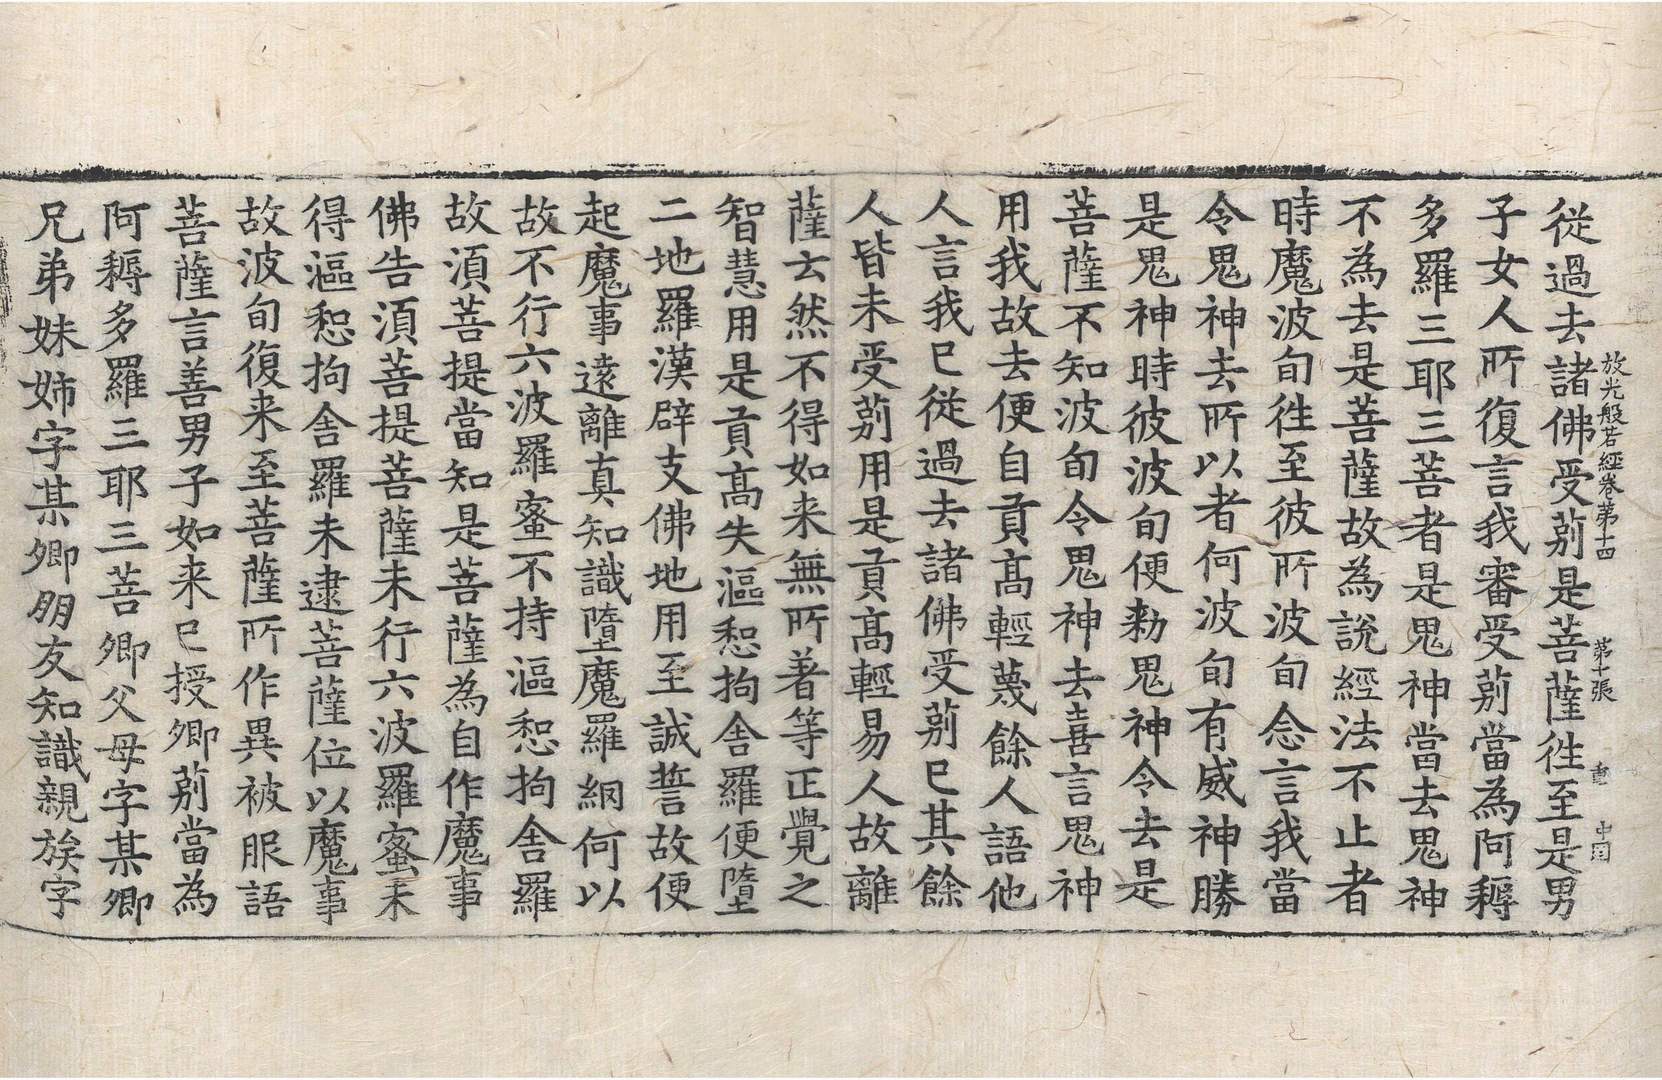 放光般若經卷第十四 第十張 重 中囯
從過去諸佛受莂是菩薩往至是男
子女人所復言我審受莂當為阿耨
多羅三耶三菩者是鬼神當去鬼神
不為去是菩薩故為說經法不止者
時魔波旬徃至彼所波旬念言我當
令鬼神去所以者何波旬有威神勝
是鬼神時彼波旬便勑鬼神令去是
菩薩不知波旬令鬼神去喜言鬼神
用我故去便自貢高輕蔑餘人語他
人言我已從過去諸佛受莂已其餘
人皆未受莂用是貢高輕易人故離
薩云然不得如来無所著等正覺之
智慧用是貢高失漚惒拘舍羅便墮
二地羅漢辟支佛地用至誠誓故便
起魔事遠離真知識墮魔羅網何以
故不行六波羅蜜不持漚惒拘舍羅
故須菩提當知是菩薩為自作魔事
佛告須菩提菩薩未行六波羅蜜未
得漚惒拘舍羅未逮菩薩位以魔事
故波旬復来至菩薩所作異被服語
菩薩言善男子如来已授卿莂當為
阿耨多羅三耶三菩卿父母字某卿
兄弟姊妹字某卿朋友知識親族字